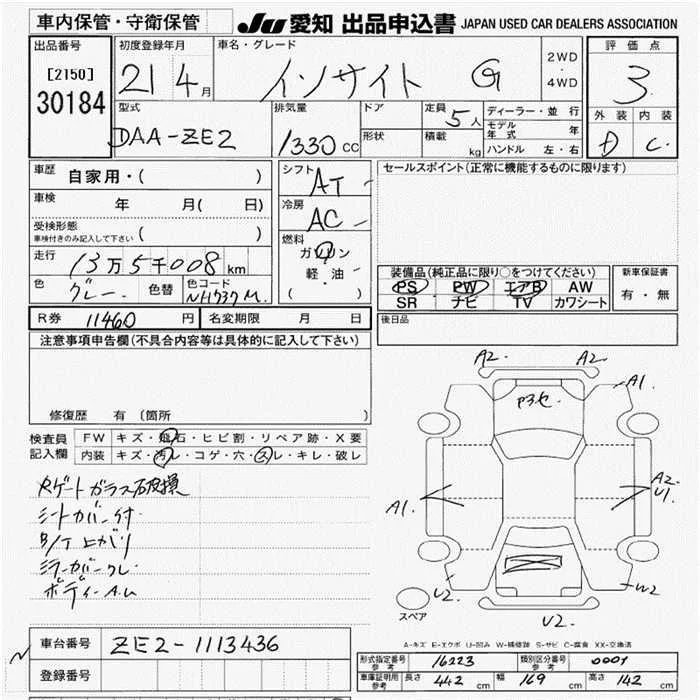 車内保管・守衛保管
JU 愛知 出品申込書 JAPAN USED CAR DEALERS ASSOCIATION
出品番号
[2150]
30184
初度登録年月
21 4月
車名・グレード
インサイト G
2WD
・
4WD
評価点
3
外装 内装
D C
型式
DAA-ZE2
排気量
1330 cc
ドア
形状
定員 5人
積載 kg
ディーラー・並行
モデル年式 年
ハンドル 左・右
車歴 自家用・( )
車検 年 月( 日)
受検形態
車検付きのみ記入して下さい ( )
走行 13万5千008 km
色 グレー 色替 色コード NH737M
シフト AT
冷房 AC
燃料
ガソリン
軽油
( )
セールスポイント(正常に機能するものに限ります)
装備品(純正品に限り○をつけてください)
PS PW エアB AW
SR ナビ TV カワシート
新車保証書
有・無
R券 11460 円 名変期限 月 日
後日品
注意事項申告欄(不具合内容等は具体的に記入して下さい)
修復歴 有 (箇所
検査員記入欄
FW キズ・飛石・ヒビ割・リペア跡・X要
内装 キズ・汚レ・コゲ・穴・スレ・キレ・破レ
Rゲートガラス破損
シートカバー付
B/T上がり
ミラーカバークレ
ボディーA.U
A2 A2
A1
P3セ
A1
A2
U1
U2 W2
U2
スペア
A-キズ E-エクボ U-凹み W-補修跡 S-サビ C-腐食 XX-交換済
車台番号 ZE2-1113436
登録番号
形式指定番号 参考 16223 類別区分番号 参考 0001
車庫証明用 参考 長さ 442 cm 幅 169 cm 高さ 142 cm